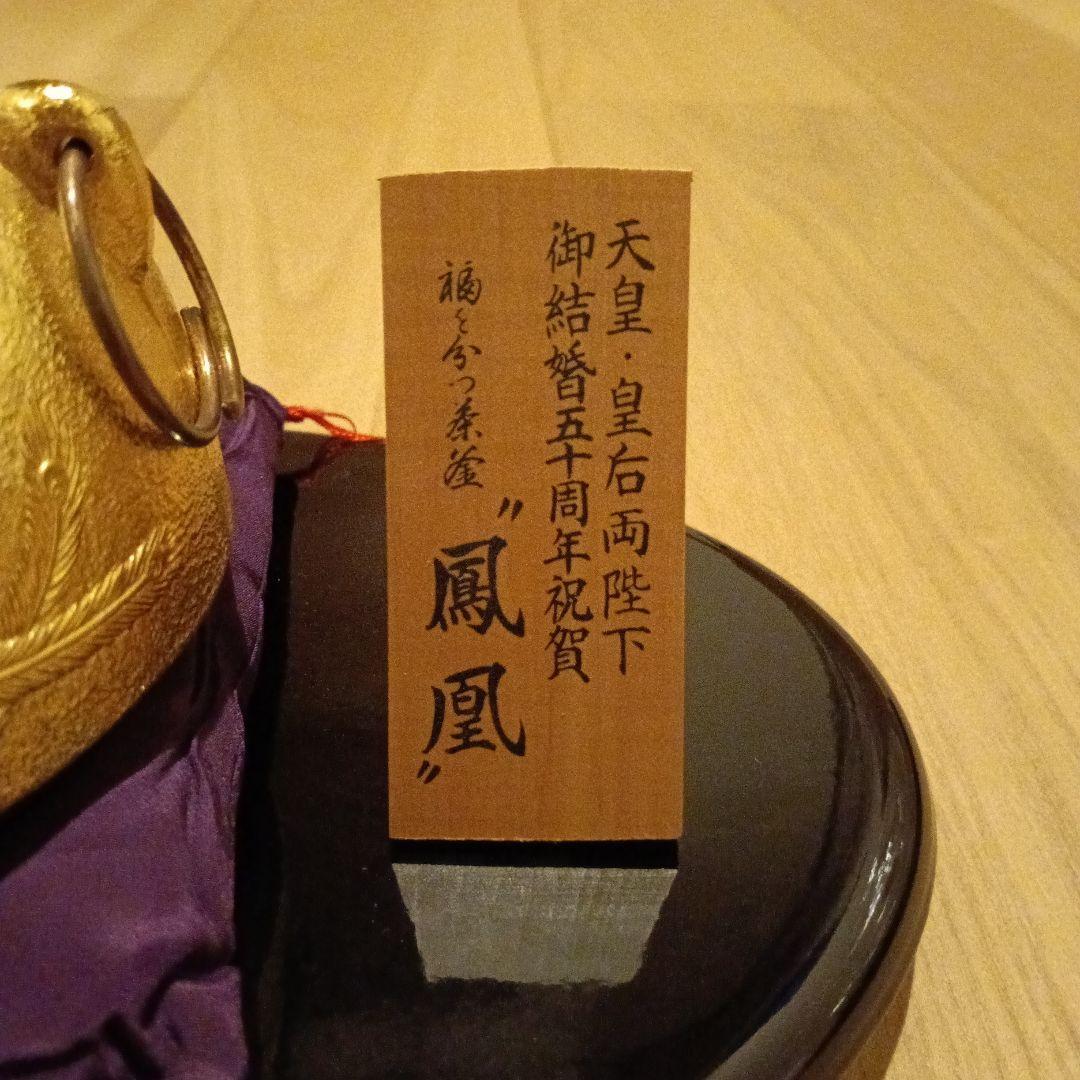 天皇・皇后両陛下
御結婚五十周年祝賀
福を分つ茶釜
〝鳳凰〟